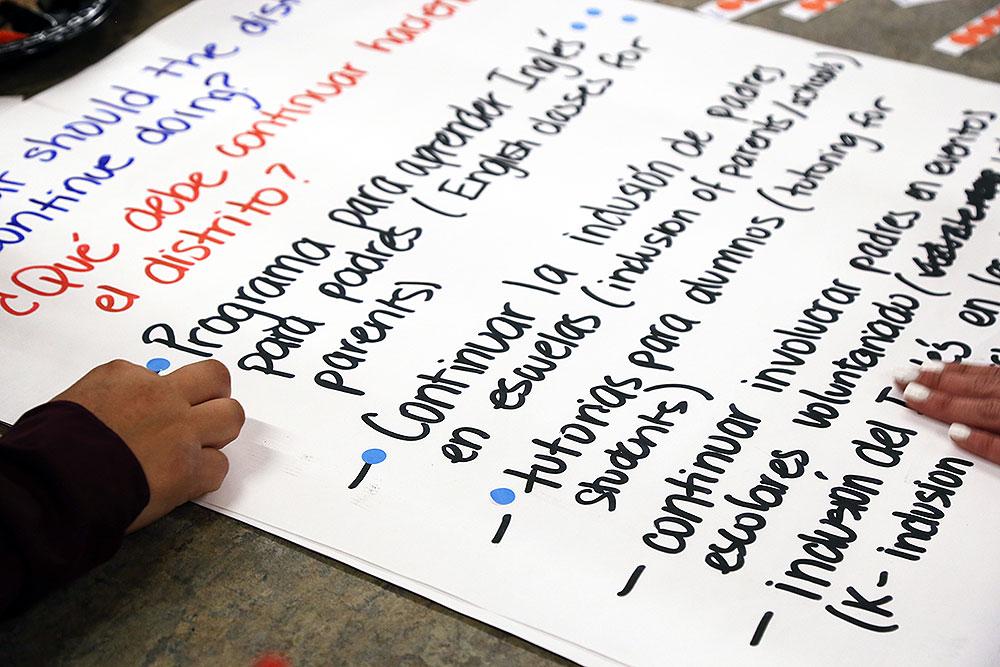 should the
continue doing?
¿Qué debe continuar
el distrito?
Programa para aprender Inglés
para padres (English classes for
parents)
- Continuar la inclusión de padres
en escuelas (inclusion of parents/schools)
- tutorias para alumnos (tutoring for
students)
- continuar involucrar padres en eventos
escolares voluntariado (
- inclusión del en
(K- inclusion